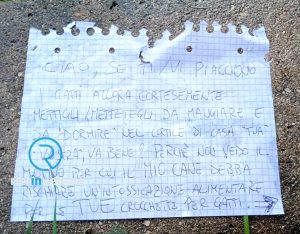 CIAO, SE TI VI PIACCIONO
I GATTI ALLORA CORTESEMENTE
METTIGLI/METTETEGLI DA MANGIARE E
DA "DORMIRE" NEL CORTILE DI CASA "TUA"
VA BENE? PERCHÈ NON VEDO IL
PER CUI IL MIO CANE DEBBA
RISCHIARE UN'INTOSSICAZIONE ALIMENTARE
TUE CROCCHETTE PER GATTI
R
in